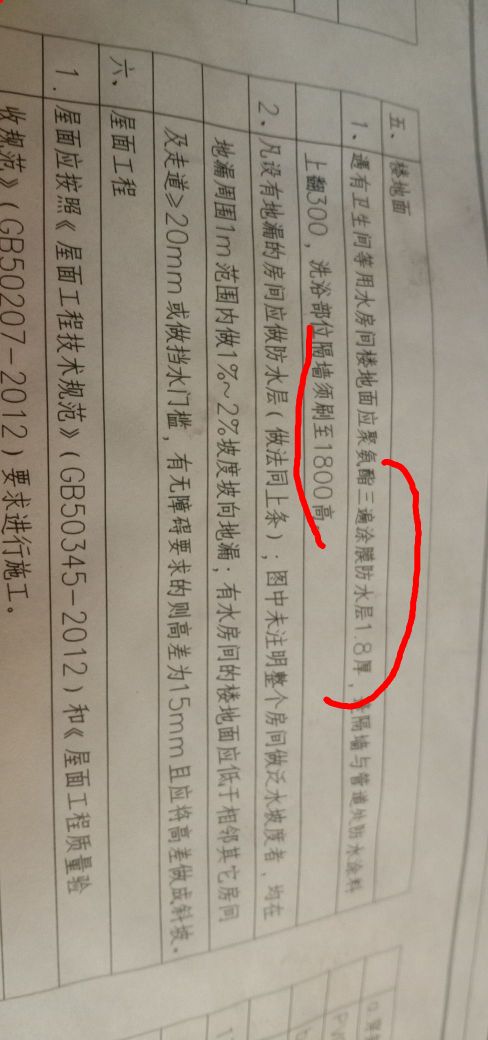 五、楼地面
1、遇有卫生间等用水房间楼地面应聚氨酯三遍涂膜防水层1.8厚，隔墙与管道处防水涂料
上翻300，洗浴部位隔墙须刷至1800高
2、凡设有地漏的房间应做防水层(做法同上条)；图中未注明整个房间做泛水坡度者，均在
地漏周围1m范围内做1%~2%坡度坡向地漏；有水房间的楼地面应低于相邻其它房间
及走道≥20mm或做挡水门槛，有无障碍要求的则高差为15mm且应将高差做成斜坡。
六、屋面工程
1.屋面应按照《屋面工程技术规范》(GB50345-2012)和《屋面工程质量验
收规范》(GB50207-2012)要求进行施工。